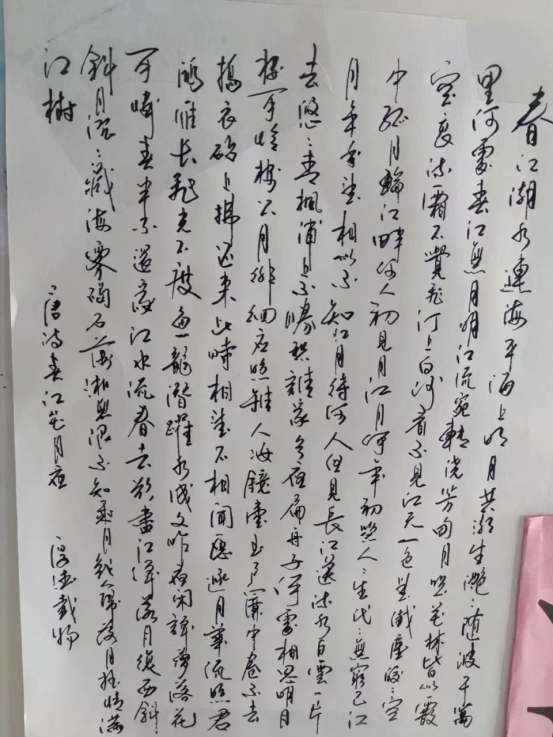 春江潮水连海平海上明月共潮生滟滟随波千万
里何处春江无月明江流宛转绕芳甸月照花林皆似霰
空里流霜不觉飞汀上白沙看不见江天一色无纤尘皎皎空
中孤月轮江畔何人初见月江月何年初照人人生代代无穷已江
月年年望相似不知江月待何人但见长江送流水白云一片
去悠悠青枫浦上不胜愁谁家今夜扁舟子何处相思明月
楼可怜楼上月徘徊应照离人妆镜台玉户帘中卷不去
捣衣砧上拂还来此时相望不相闻愿逐月华流照君
鸿雁长飞光不度鱼龙潜跃水成文昨夜闲潭梦落花
可怜春半不还家江水流春去欲尽江潭落月复西斜
斜月沉沉藏海雾碣石潇湘无限路不知乘月几人归落月摇情满
江树
唐诗春江花月夜
厚德载物